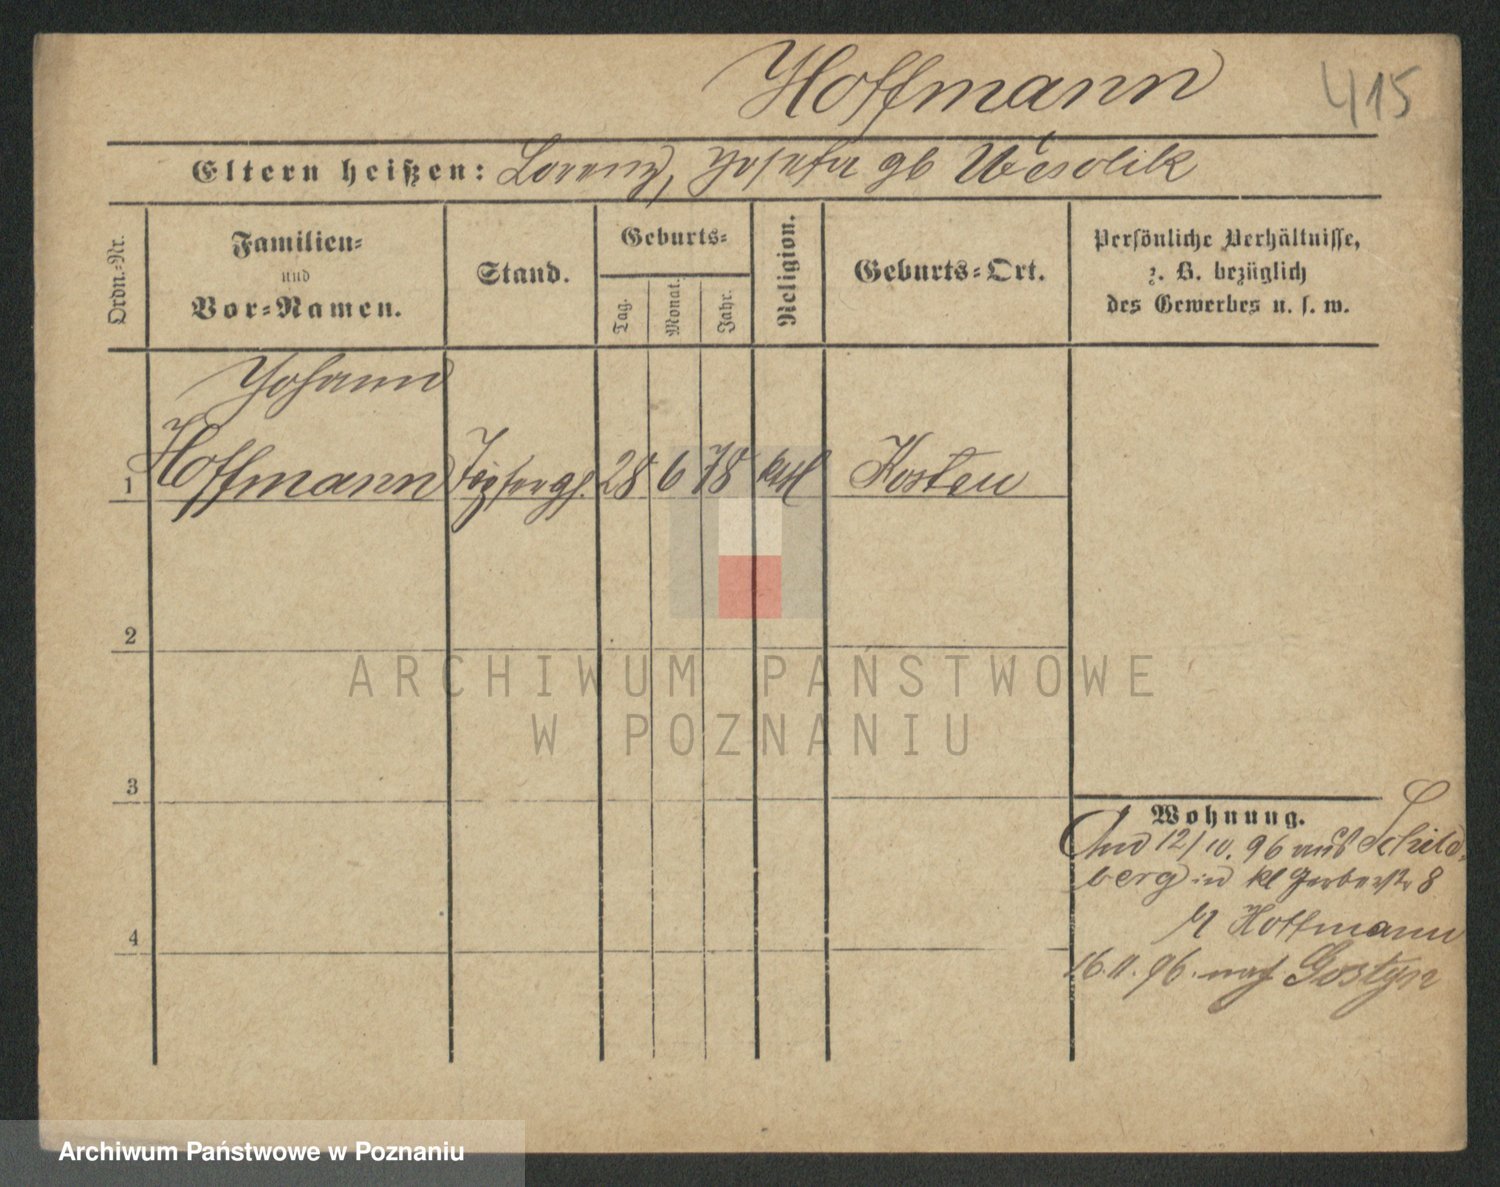 Hoffmann 415
Eltern heißen: Lorenz, Josefa gb Wesolik
Ordn.-Nr.
Familien-
und
Vor-Namen.
Stand.
Geburts-
Tag.
Monat.
Jahr.
Religion.
Geburts-Ort.
Persönliche Verhältnisse,
z. B. bezüglich
des Gewerbes u. s. w.
Johann
1 Hoffmann Töpfergs. 28 6 78 kath Kosten
2
3
4
Wohnung.
12/10. 96 aus Schild-
berg in kl Gerberstr 8
Hoffmann
16.11.96. nach Gostyn
ARCHIWUM PAŃSTWOWE
W POZNANIU
Archiwum Państwowe w Poznaniu